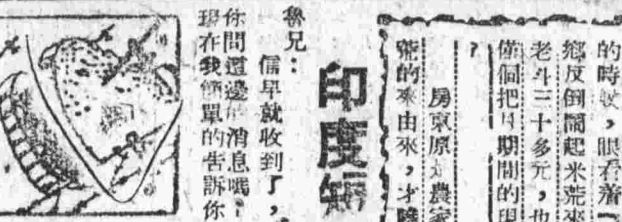 的時候，眼看着
鄉反倒鬧起米荒來
老斗三十多元，也
僅個把月期間的
？
房東原是農家
荒的來由來，才
印度
魯兄：
信早就收到了，
你問這邊的消息嗎？
現在我簡單的告訴你